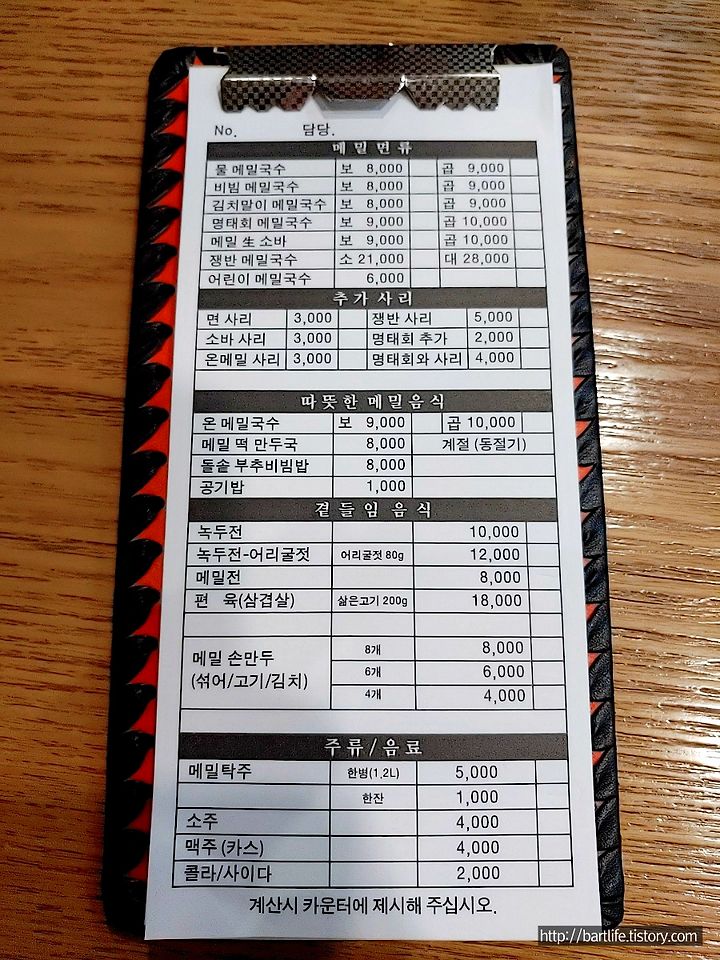 No. 담당.
메밀면류
물 메밀국수 보 8,000 곱 9,000
비빔 메밀국수 보 8,000 곱 9,000
김치말이 메밀국수 보 8,000 곱 9,000
명태회 메밀국수 보 9,000 곱 10,000
메밀 生 소바 보 9,000 곱 10,000
쟁반 메밀국수 소 21,000 대 28,000
어린이 메밀국수 6,000
추가사리
면 사리 3,000 쟁반 사리 5,000
소바 사리 3,000 명태회 추가 2,000
온메밀 사리 3,000 명태회와 사리 4,000
따뜻한 메밀음식
온 메밀국수 보 9,000 곱 10,000
메밀 떡 만두국 8,000 계절 (동절기)
돌솥 부추비빔밥 8,000
공기밥 1,000
곁들임 음식
녹두전 10,000
녹두전-어리굴젓 어리굴젓 80g 12,000
메밀전 8,000
편 육(삼겹살) 삶은고기 200g 18,000
메밀 손만두 8개 8,000
(섞어/고기/김치) 6개 6,000
4개 4,000
주류/음료
메밀탁주 한병(1.2L) 5,000
한잔 1,000
소주 4,000
맥주 (카스) 4,000
콜라/사이다 2,000
계산시 카운터에 제시해 주십시오.
http://bartlife.tistory.com